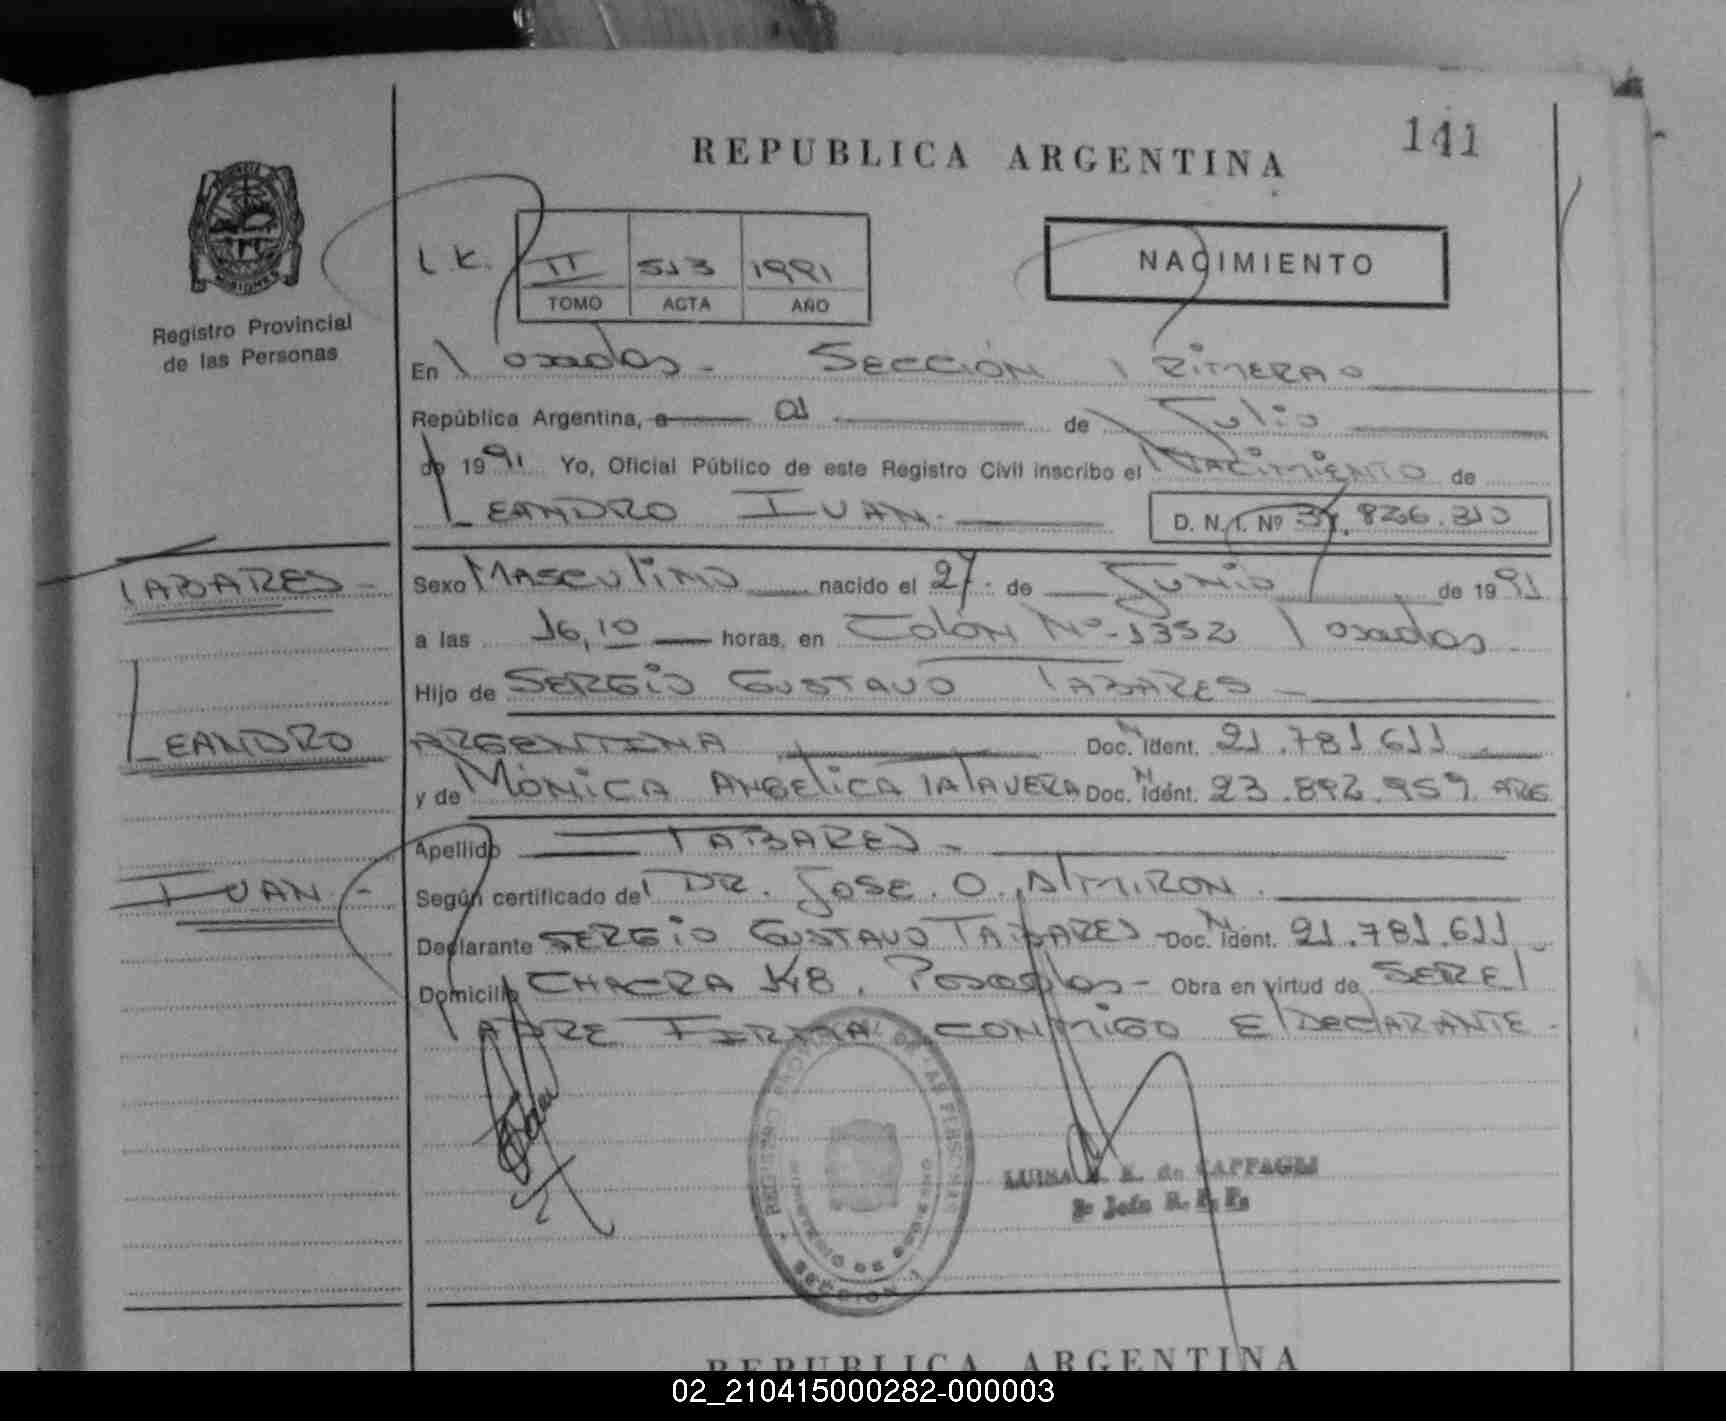 141
REPUBLICA ARGENTINA
Registro Provincial
de las Personas
I.K.
II 513 1991
TOMO ACTA AÑO
NACIMIENTO
En Posadas - SECCIÓN PRIMERA
República Argentina, a 01 de Julio
de 1991 Yo, Oficial Público de este Registro Civil inscribo el NACIMIENTO de
LEANDRO IVAN.
D. N. I. Nº .826.310
TABARES -
LEANDRO
IVAN -
Sexo MASCULINO nacido el 27 de JUNIO de 1991
a las 16,10 horas, en COLÓN Nº-1352 Posadas -
Hijo de SERGIO GUSTAVO TABARES -
ARGENTINA Doc. N Ident. 21.781.611
y de MÓNICA ANGELICA TALAVERA Doc. N Ident. 23.892.959 ARG
Apellido TABARES -
Según certificado del DR. JOSE. O. ALMIRON.
Declarante SERGIO GUSTAVO TABARES - Doc. N Ident. 21.781.611 -
Domicilio CHACRA 148. Posadas - Obra en virtud de SER El
PADRE FIRMA CONMIGO El DECLARANTE -
REGISTRO PROVINCIAL DE LAS PERSONAS
MINISTERIO DE GOBIERNO
SECCION 1
LUISA de CAPPAGLI
REPUBLICA ARGENTINA
02_210415000282-000003